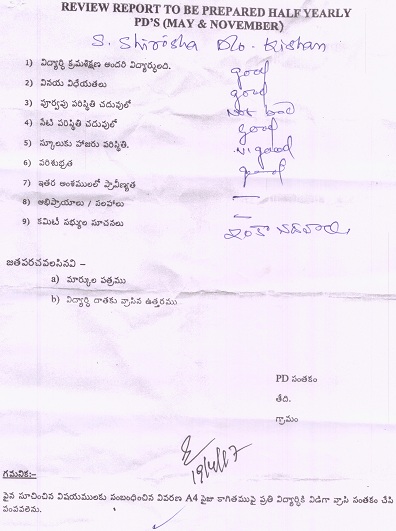 REVIEW REPORT TO BE PREPARED HALF YEARLY
PD'S (MAY & NOVEMBER)
S. Shirisha D/o. Kishan
1) విద్యార్ధి క్రమశిక్షణ అందరి విద్యార్థులది. good
2) వినయ విధేయతలు good
3) పూర్వపు పరిస్థితి చదువులో Not bad
4) నేటి పరిస్థితి చదువులో good
5) స్కూలుకు హాజరు పరిస్థితి. good
6) పరిశుభ్రత good
7) ఇతర అంశములలో ప్రావీణ్యత —
8) అభిప్రాయాలు / సలహాలు —
9) కమిటీ సభ్యుల సూచనలు ఇంకా చదవాలి.
జతపరచవలసినవి –
a) మార్కుల పత్రము
b) విద్యార్ధి దాతకు వ్రాసిన ఉత్తరము
PD సంతకం
తేది.
గ్రామం
గమనిక:-
పైన సూచించిన విషయములకు సంబంధించిన వివరణ A4 సైజు కాగితముపై ప్రతి విద్యార్ధికి విడిగా వ్రాసి సంతకం చేసి
పంపవలెను.